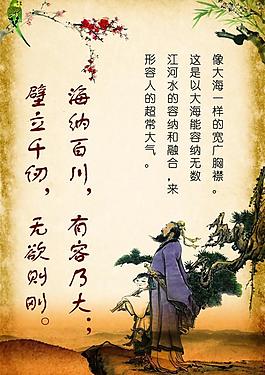 像大海一样的宽广胸襟。
这是以大海能容纳无数
江河水的容纳和融合,来
形容人的超常大气。
海纳百川,有容乃大;
壁立千仞,无欲则刚。